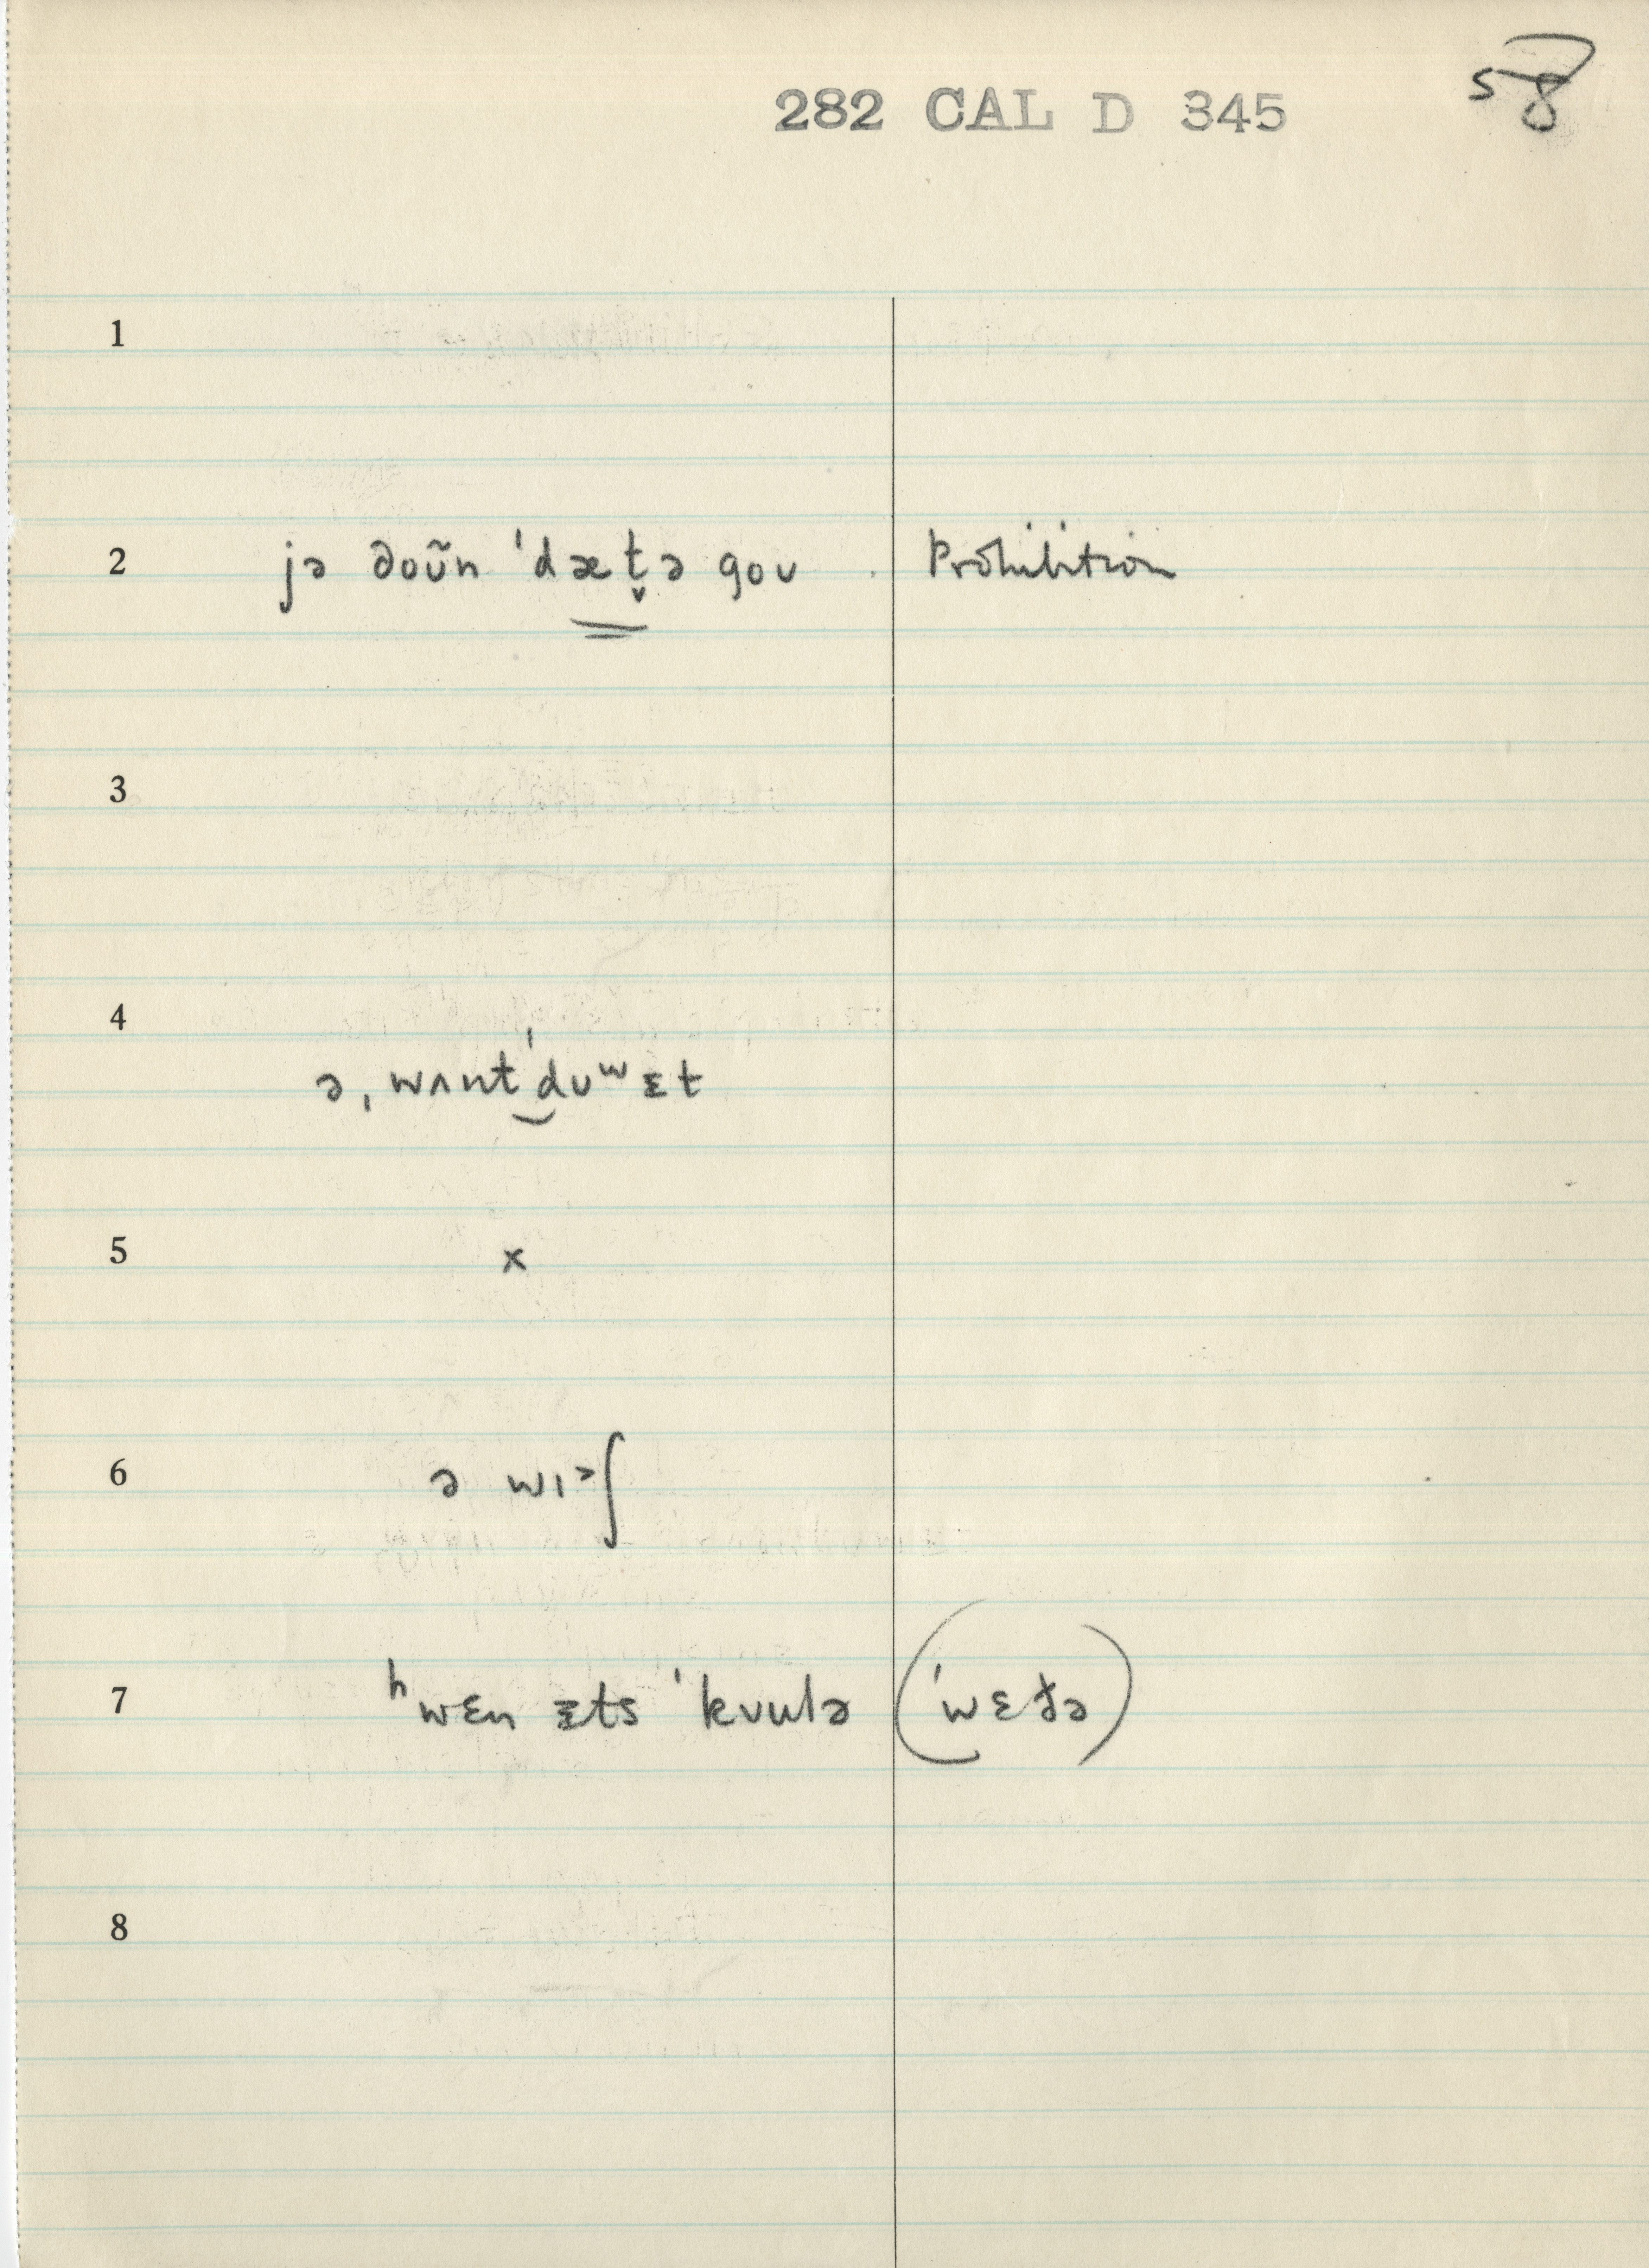 58
282 CAL D 345
1
2 jə doʊ̃n ˈdæt̬ə goʊ . Prohibition
3
4 ə ˌwʌntˈdʊʷɪt
5 x
6 ə wɪᵊʃ
7 ʰwɛn ɪts ˈkʊulə (ˈwɛðə)
8